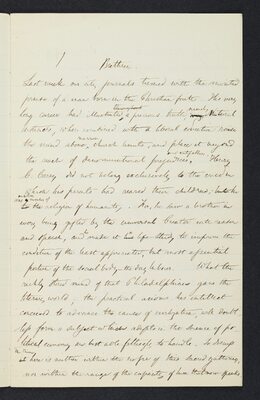 1
Last week our city journals teemed with the merited
praises of a man born in the Christian faith. His very
long career had illustrated throughout a precious truth namely: Natural
when combined with a liberal education raise
the mind above narrow church limits, and place it beyond
the reach of denominational prejudices. Henry
C. Carey, did not belong exclusively to the creed in
which his parents had reared their children,
the religion of humanity. He saw a brother in
every being gifted by the universal Creator with reason
and speech, and made it his life study to improve the
condition of the least appreciated, but most essential
portion of the social body the day labor. What the
richly stored mind of that Philadelphian gave the
literary world; the practical means his intellect
conceived to advance the cause of civilization, will doubt
less form a subject which adepts in the science of po
litical economy are best able fittingly to handle. To attempt
it here is neither within the scope of these sacred gatherings,
nor within the range of the capacity of him that now speaks